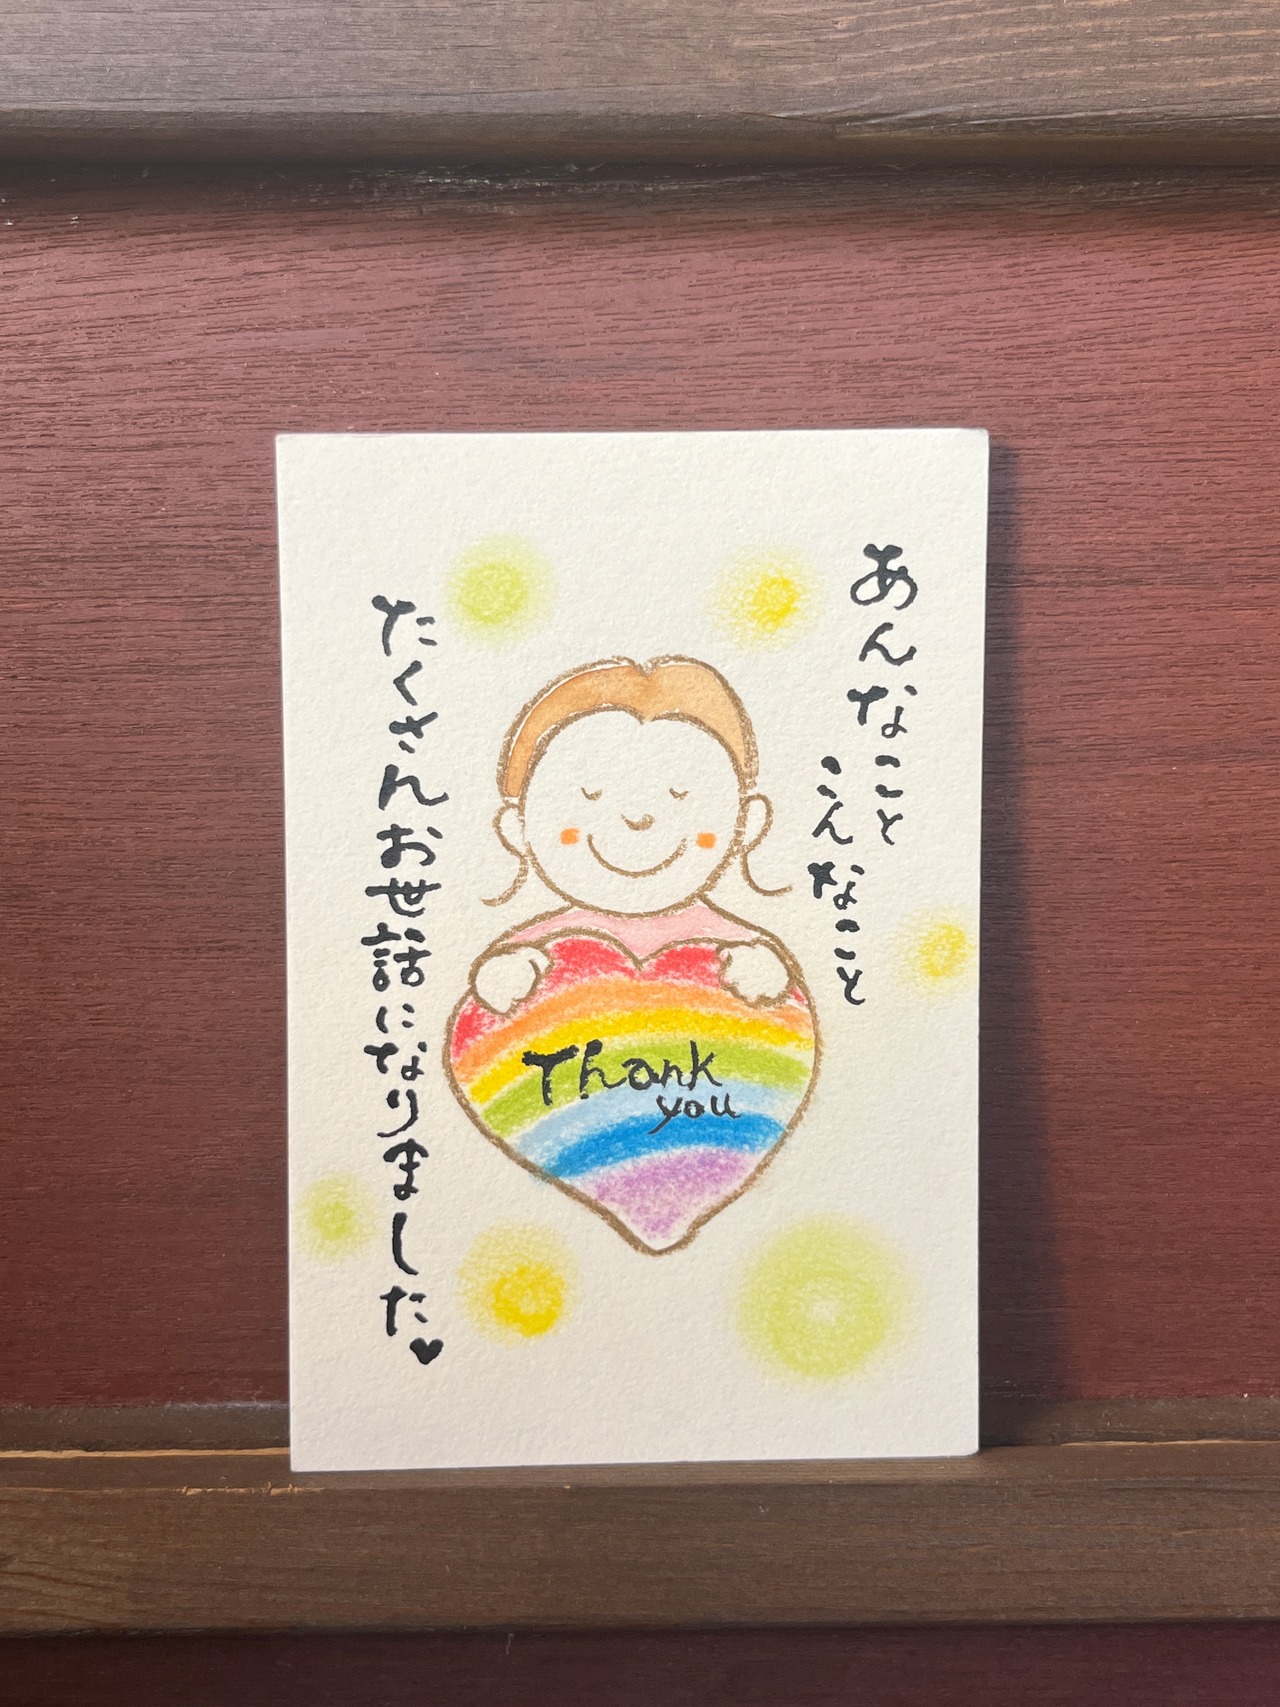 あんなこと
こんなこと
たくさんお世話になりました♥
Thank
you